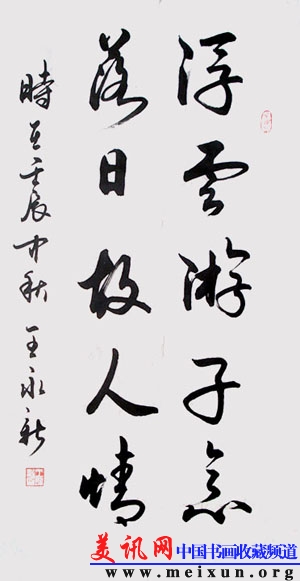 浮云游子意
落日故人情
時在壬辰中秋 王永新
美讯网 中国书画收藏频道
www.meixun.org